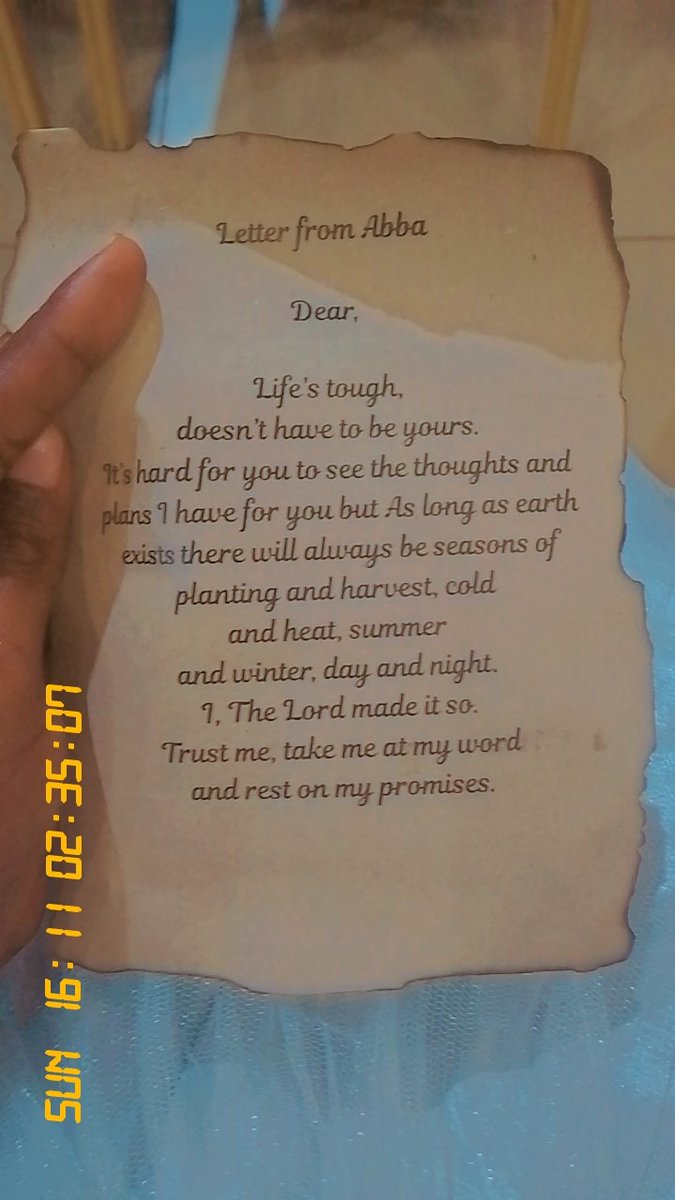 Letter from Abba
Dear,
Life's tough,
doesn't have to be yours.
It's hard for you to see the thoughts and
plans I have for you but As long as earth
exists there will always be seasons of
planting and harvest, cold
and heat, summer
and winter, day and night.
I, The Lord made it so.
Trust me, take me at my word
and rest on my promises.
SUN 16:11 02:35:07